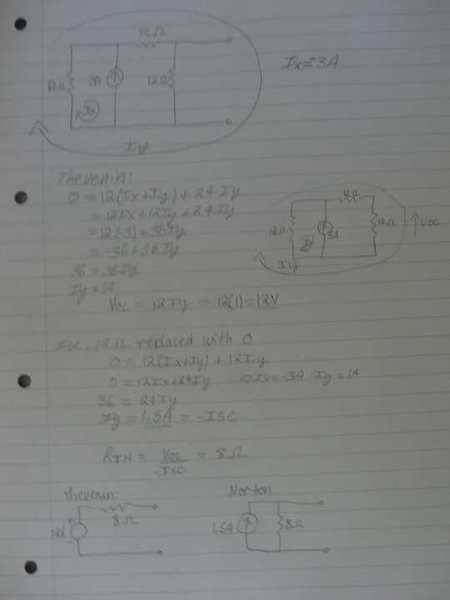 12Ω
12Ω 3A 12Ω
Ix
Iy
Ix=-3A
Thevenin:
0 = 12(Ix+Iy) + 24Iy
= 12Ix+12Iy+24Iy
= 12(-3)+36Iy
= -36+36Iy
36 = 36Iy
Iy = 1A
12Ω 3A 12Ω Voc
Iy
Voc = 12Iy = 12(1) = 12V
12Ω replaced with 0
0 = 12(Ix+Iy) + 12Iy
0 = 12Ix+24Iy Ix=-3A
36 = 24Iy
Iy = 1.5A = -Isc
RTH = Voc / -Isc = 8Ω
Thevenin:
8Ω
12V
Norton
1.5A 8Ω